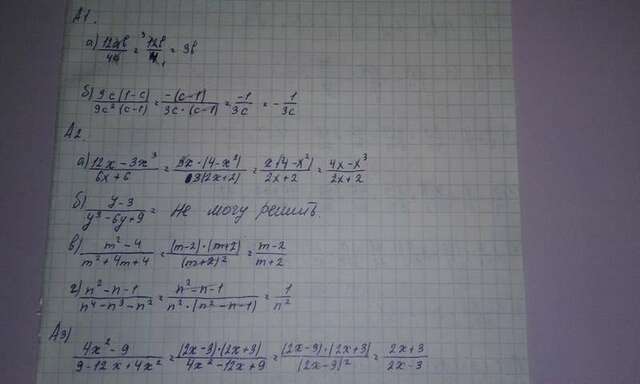 А1.
а) 12ав/4а = 12в/4 = 3в
б) 3с(1-с)/9с²(с-1) = -(с-1)/3с·(с-1) = -1/3с = -1/3с
А2.
а) 12x-3x³/6x+6 = 3x·(4-x²)/3(2x+2) = x(4-x²)/2x+2 = 4x-x³/2x+2
б) y-3/y³-6y+9 = Не могу решить.
в) m²-4/m²+4m+4 = (m-2)·(m+2)/(m+2)² = m-2/m+2
г) n²-n-1/n⁴-n³-n² = n²-n-1/n²·(n²-n-1) = 1/n²
А3)
4x²-9/9-12x+4x² = (2x-3)·(2x+3)/4x²-12x+9 = (2x-3)·(2x+3)/(2x-3)² = 2x+3/2x-3